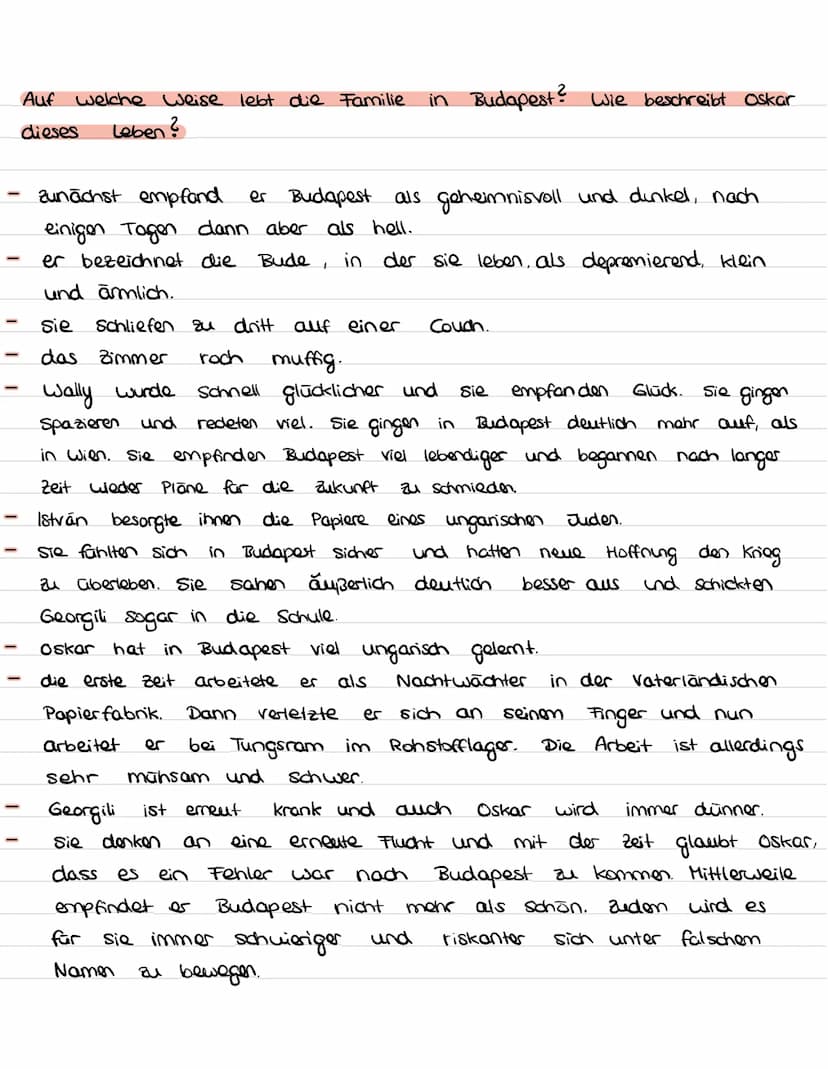 Auf welche Weise lebt die Familie in Budapest? Wie beschreibt Oskar
dieses Leben?
- zunächst empfand er Budapest als geheimnisvoll und dunkel, nach
einigen Tagen dann aber als hell.
- er bezeichnet die Bude, in der sie leben, als depremierend, klein
und ärmlich.
- sie schliefen zu dritt auf einer Couch.
- das Zimmer roch muffig.
- Wally wurde schnell glücklicher und sie empfanden Glück. Sie gingen
spazieren und redeten viel. Sie gingen in Budapest deutlich mehr auf, als
in Wien. Sie empfinden Budapest viel lebendiger und begannen nach langer
Zeit wieder Pläne für die Zukunft zu schmieden.
- István besorgte ihnen die Papiere eines ungarischen Juden.
- sie fühlten sich in Budapest sicher und hatten neue Hoffnung den Krieg
zu überleben. Sie sahen äußerlich deutlich besser aus und schickten
Georgili sogar in die Schule.
- Oskar hat in Budapest viel ungarisch gelernt.
- die erste Zeit arbeitete er als Nachtwächter in der Vaterländischen
Papierfabrik. Dann verletzte er sich an seinem Finger und nun
arbeitet er bei Tungsram im Rohstofflager. Die Arbeit ist allerdings
sehr mühsam und schwer.
- Georgili ist erneut krank und auch Oskar wird immer dünner.
- Sie denken an eine erneute Flucht und mit der Zeit glaubt Oskar,
dass es ein Fehler war nach Budapest zu kommen. Mittlerweile
empfindet er Budapest nicht mehr als schön. Zudem wird es
für sie immer schwieriger und riskanter sich unter falschem
Namen zu bewegen.